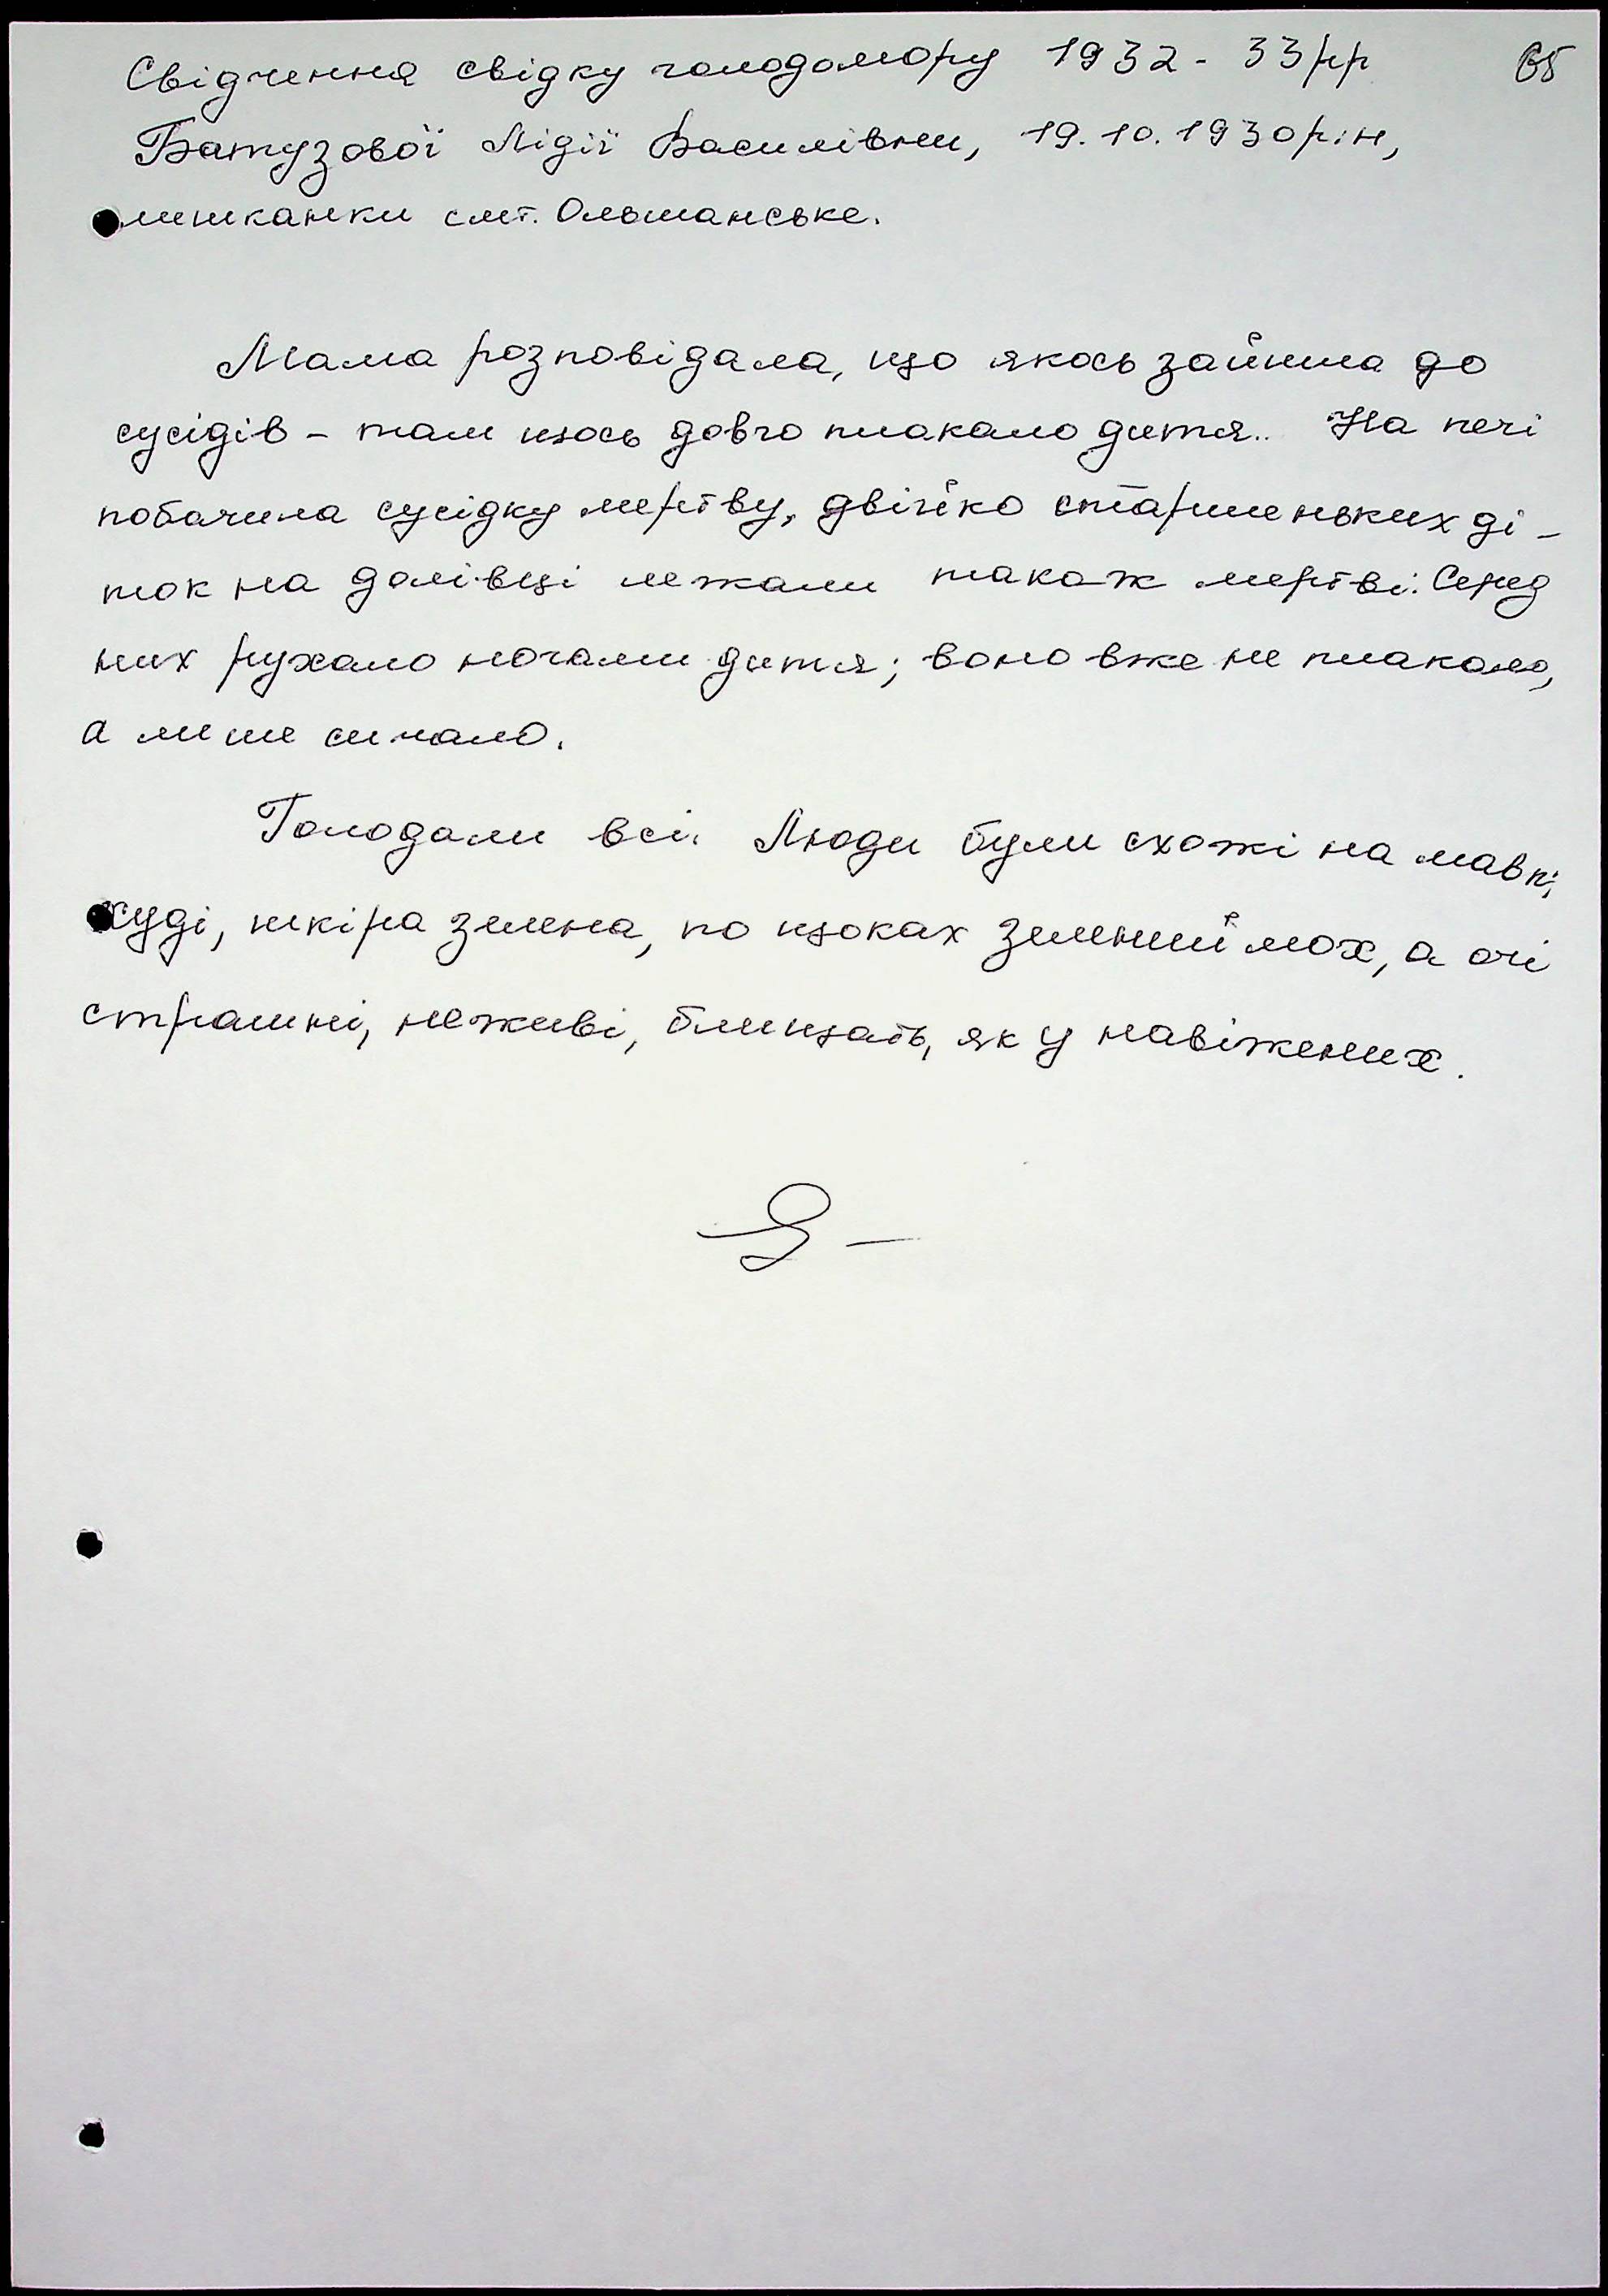 Свідчення свідку голодомору 1932 - 33рр 65
Батузової Лідії Василівни, 19.10.1930р.н,
мешканки смт. Ольшанське.
Мама розповідала, що якось зайшла до
сусідів - там щось довго плакало дитя.. На печі
побачила сусідку мертву, двійко старшеньких ді-
ток на долівці лежали також мертві. Серед
них рухало ногами дитя; воно вже не плакало,
а лише сичало.
Голодали всі. Люди були схожі на мавп,
худі, шкіра зелена, по щоках зелений мох, а очі
страшні, неживі, блищать, як у навіжених.